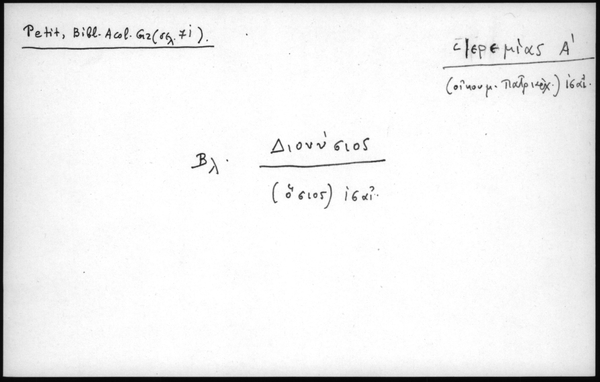 Petit, Bibl. Acol. Gr (σελ. 71).
Ἱερεμίας Α'
(οἰκουμ. Πατριάρχ.) ις' αἰ.
Βλ. Διονύσιος
(ὅσιος) ις' αἰ.